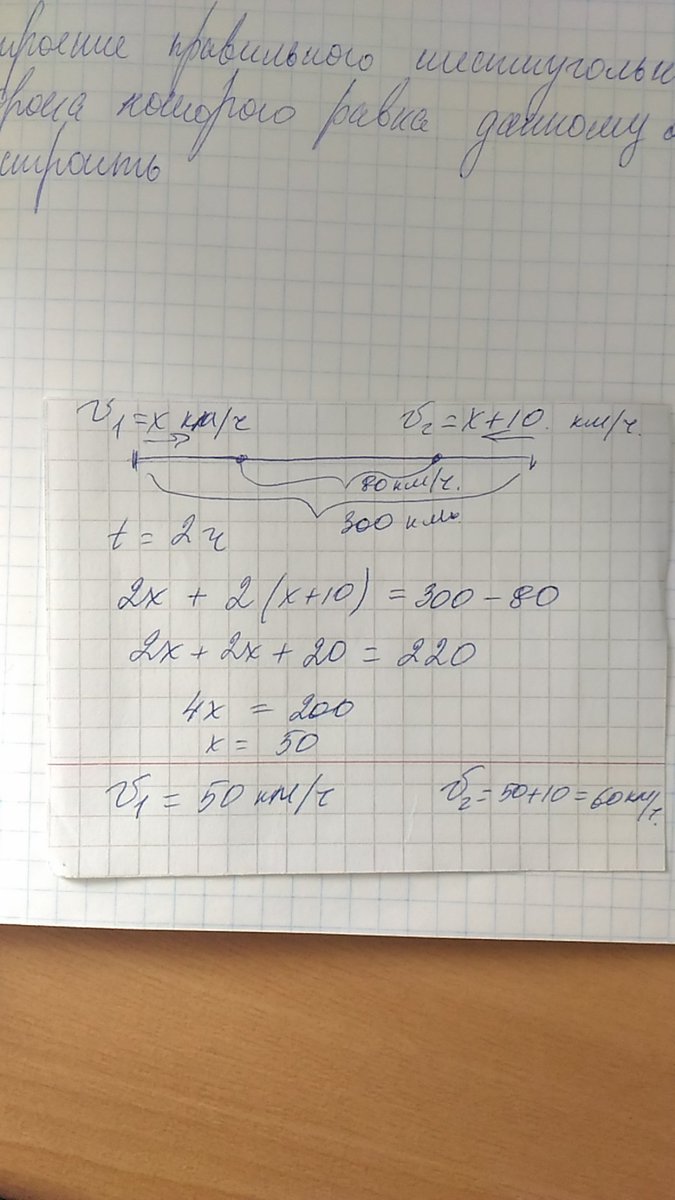 троение правильного шестиугольн
рона которого равна данному о
строить
v₁ = x км/ч v₂ = x+10. км/ч.
80 км/ч.
300 км.
t = 2 ч
2x + 2(x+10) = 300 - 80
2x + 2x + 20 = 220
4x = 200
x = 50
v₁ = 50 км/ч v₂ = 50+10 = 60 км/ч.